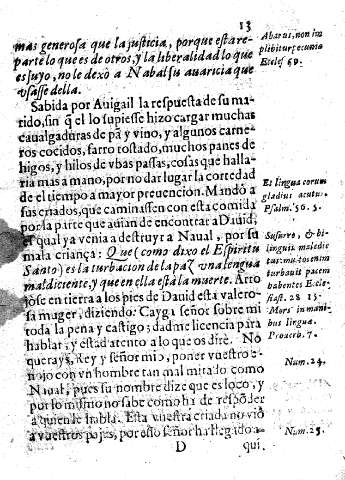 13
mas generosa que la justicia, porque esta re-
parte lo que es de otros, y la liberalidad lo que
es suyo, no le dexò a Nabal su auaricia que
vsasse della.
Sabida por Auigail la respuesta de su ma-
rido, sin q̃ el lo supiesse hizo cargar muchas
caualgaduras de pã y vino, y algunos carne-
ros cocidos, farro tostado, muchos panes de
higos, y hilos de vbas passas, cosas que halla-
ria mas a mano, por no dar lugar la cortedad
de el tiempo a mayor preuencion. Mandò a
sus criados, que caminassen con esta comida
por la parte que auian de encontrar a Dauid,
el qual ya venia a destruyr a Naual, por su
mala criança: Que (como dixo el Espiritu
Santo) es la turbacion de la paz vna lengua
maldiciente, y que en ella està la muerte. Arro
jose en tierra a los pies de Dauid esta valero-
sa muger, diziendo: Cayga señor sobre mi
toda la pena y castigo; dadme licencia para
hablar, y estad atento a lo que os dirè. No
querays, Rey y señor mio, poner vuestro e-
nojo con vn hombre tan mal mirado como
Naual, pues su nombre dize que es loco, y
por lo mismo no sabe como ha de respõder
a quien le habla. Esta vuestra criada no viò
a vuestros pajes, por esso señor ha llegado a-
D qui.
Abarus, non im
plibitur pecunia
Eccles 59.
Et lingua eorum
gladius acutus.
Psalm. 56. 5.
Susurro, & bi-
linguis maledic
tus: multos enim
turbauit pacem
habentes Eccle-
siast. 28 15.
Mors in mani-
bus lingua.
Prouerb. 7.
Num. 24.
Num. 25.